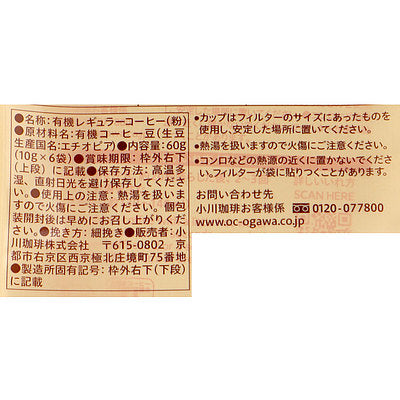 ●名称:有機レギュラーコーヒー(粉)
●原材料名:有機コーヒー豆(生豆
生産国名:エチオピア)●内容量:60g
(10g×6袋)●賞味期限:枠外右下
(上段)に記載●保存方法:高温多
湿、直射日光を避け保存してくださ
い。●使用上の注意:熱湯を扱いま
すので火傷にご注意ください。個包
装開封後は早めにお召し上がりくだ
さい。●挽き方:細挽き●販売者:小
川珈琲株式会社 〒615-0802 京
都市右京区西京極北庄境町75番地
●製造所固有記号:枠外右下(下段)
に記載
•カップはフィルターのサイズにあったものを
使用し、安定した場所に置いてください。
•熱湯を扱いますので火傷にご注意ください。
•コンロなどの熱源の近くに置かないでくださ
い。フィルターが袋に貼りつくことがあります。
詳しいいれ方
SCAN HERE
お問い合わせ先
小川珈琲お客様係 0120-077800
www.oc-ogawa.co.jp